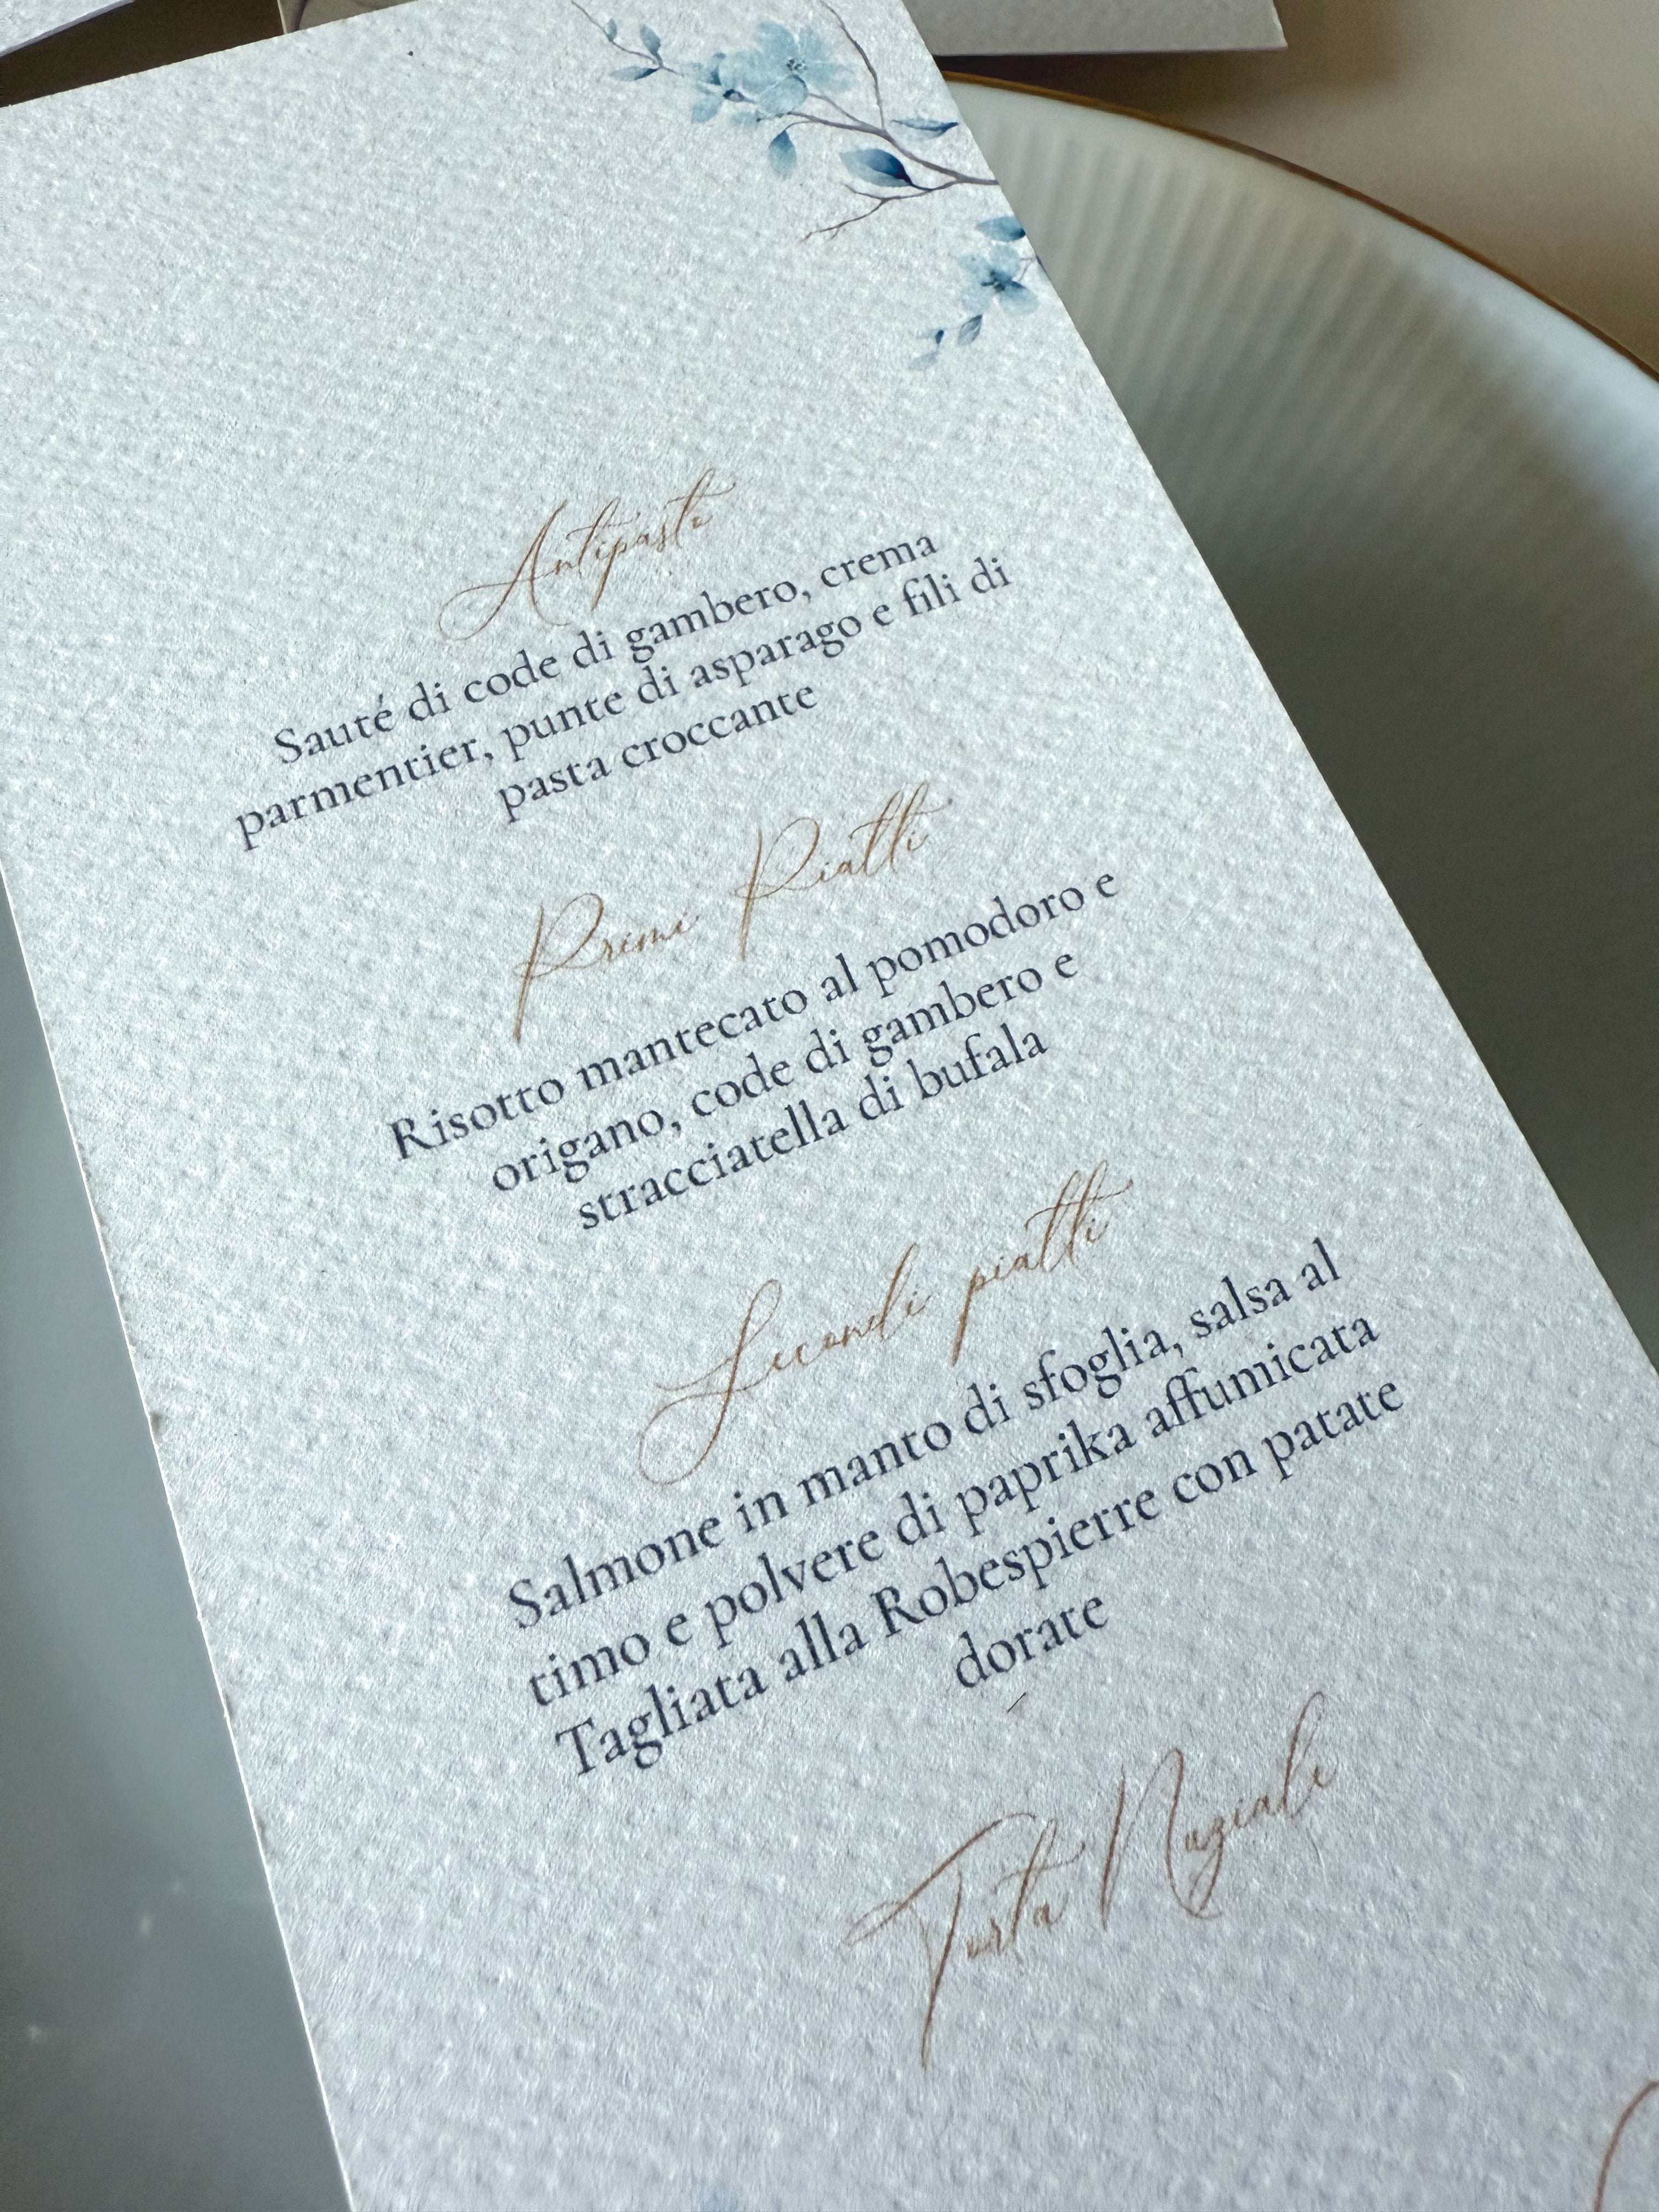 Antipasto
Sauté di code di gambero, crema
parmentier, punte di asparago e fili di
pasta croccante
Primi Piatti
Risotto mantecato al pomodoro e
origano, code di gambero e
stracciatella di bufala
Secondi piatti
Salmone in manto di sfoglia, salsa al
timo e polvere di paprika affumicata
Tagliata alla Robespierre con patate
dorate
Torta Nuziale